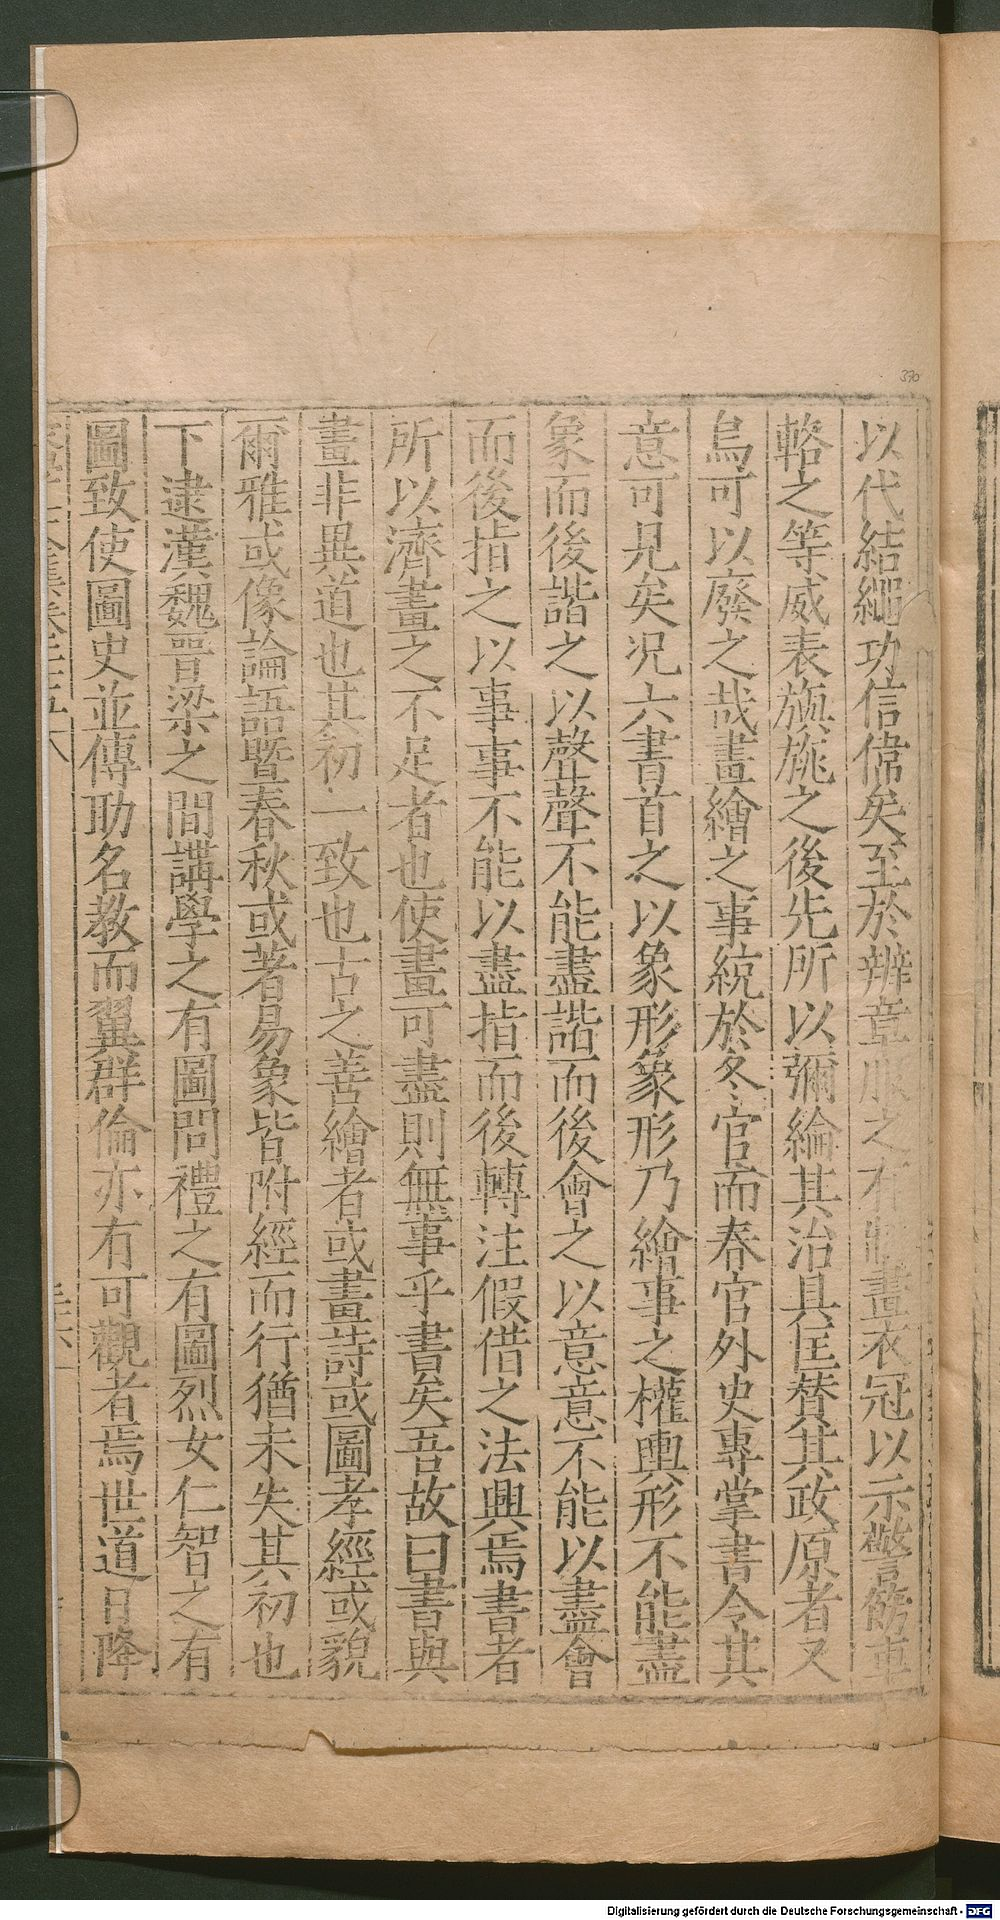 370
以代結繩功信偉矣至於辨章服之有制畫衣冠以示警飭車
輅之等威表旟旐之後先所以彌綸其治具匡贊其政原者又
烏可以廢之哉畫繪之事統於冬官而春官外史專掌書令其
意可見矣況六書首之以象形象形乃繪事之權輿形不能盡
象而後諧之以聲聲不能盡諧而後會之以意意不能以盡會
而後指之以事事不能以盡指而後轉注假借之法興焉書者
所以濟畫之不足者也使畫可盡則無事乎書矣吾故曰書與
畫非異道也其初一致也古之善繪者或畫詩或圖孝經或貌
爾雅或像論語暨春秋或著易象皆附經而行猶未失其初也
下逮漢魏晉梁之間講學之有圖問禮之有圖烈女仁智之有
圖致使圖史並傳助名教而翼群倫亦有可觀者焉世道日降
Digitalisierung gefördert durch die Deutsche Forschungsgemeinschaft - DFG